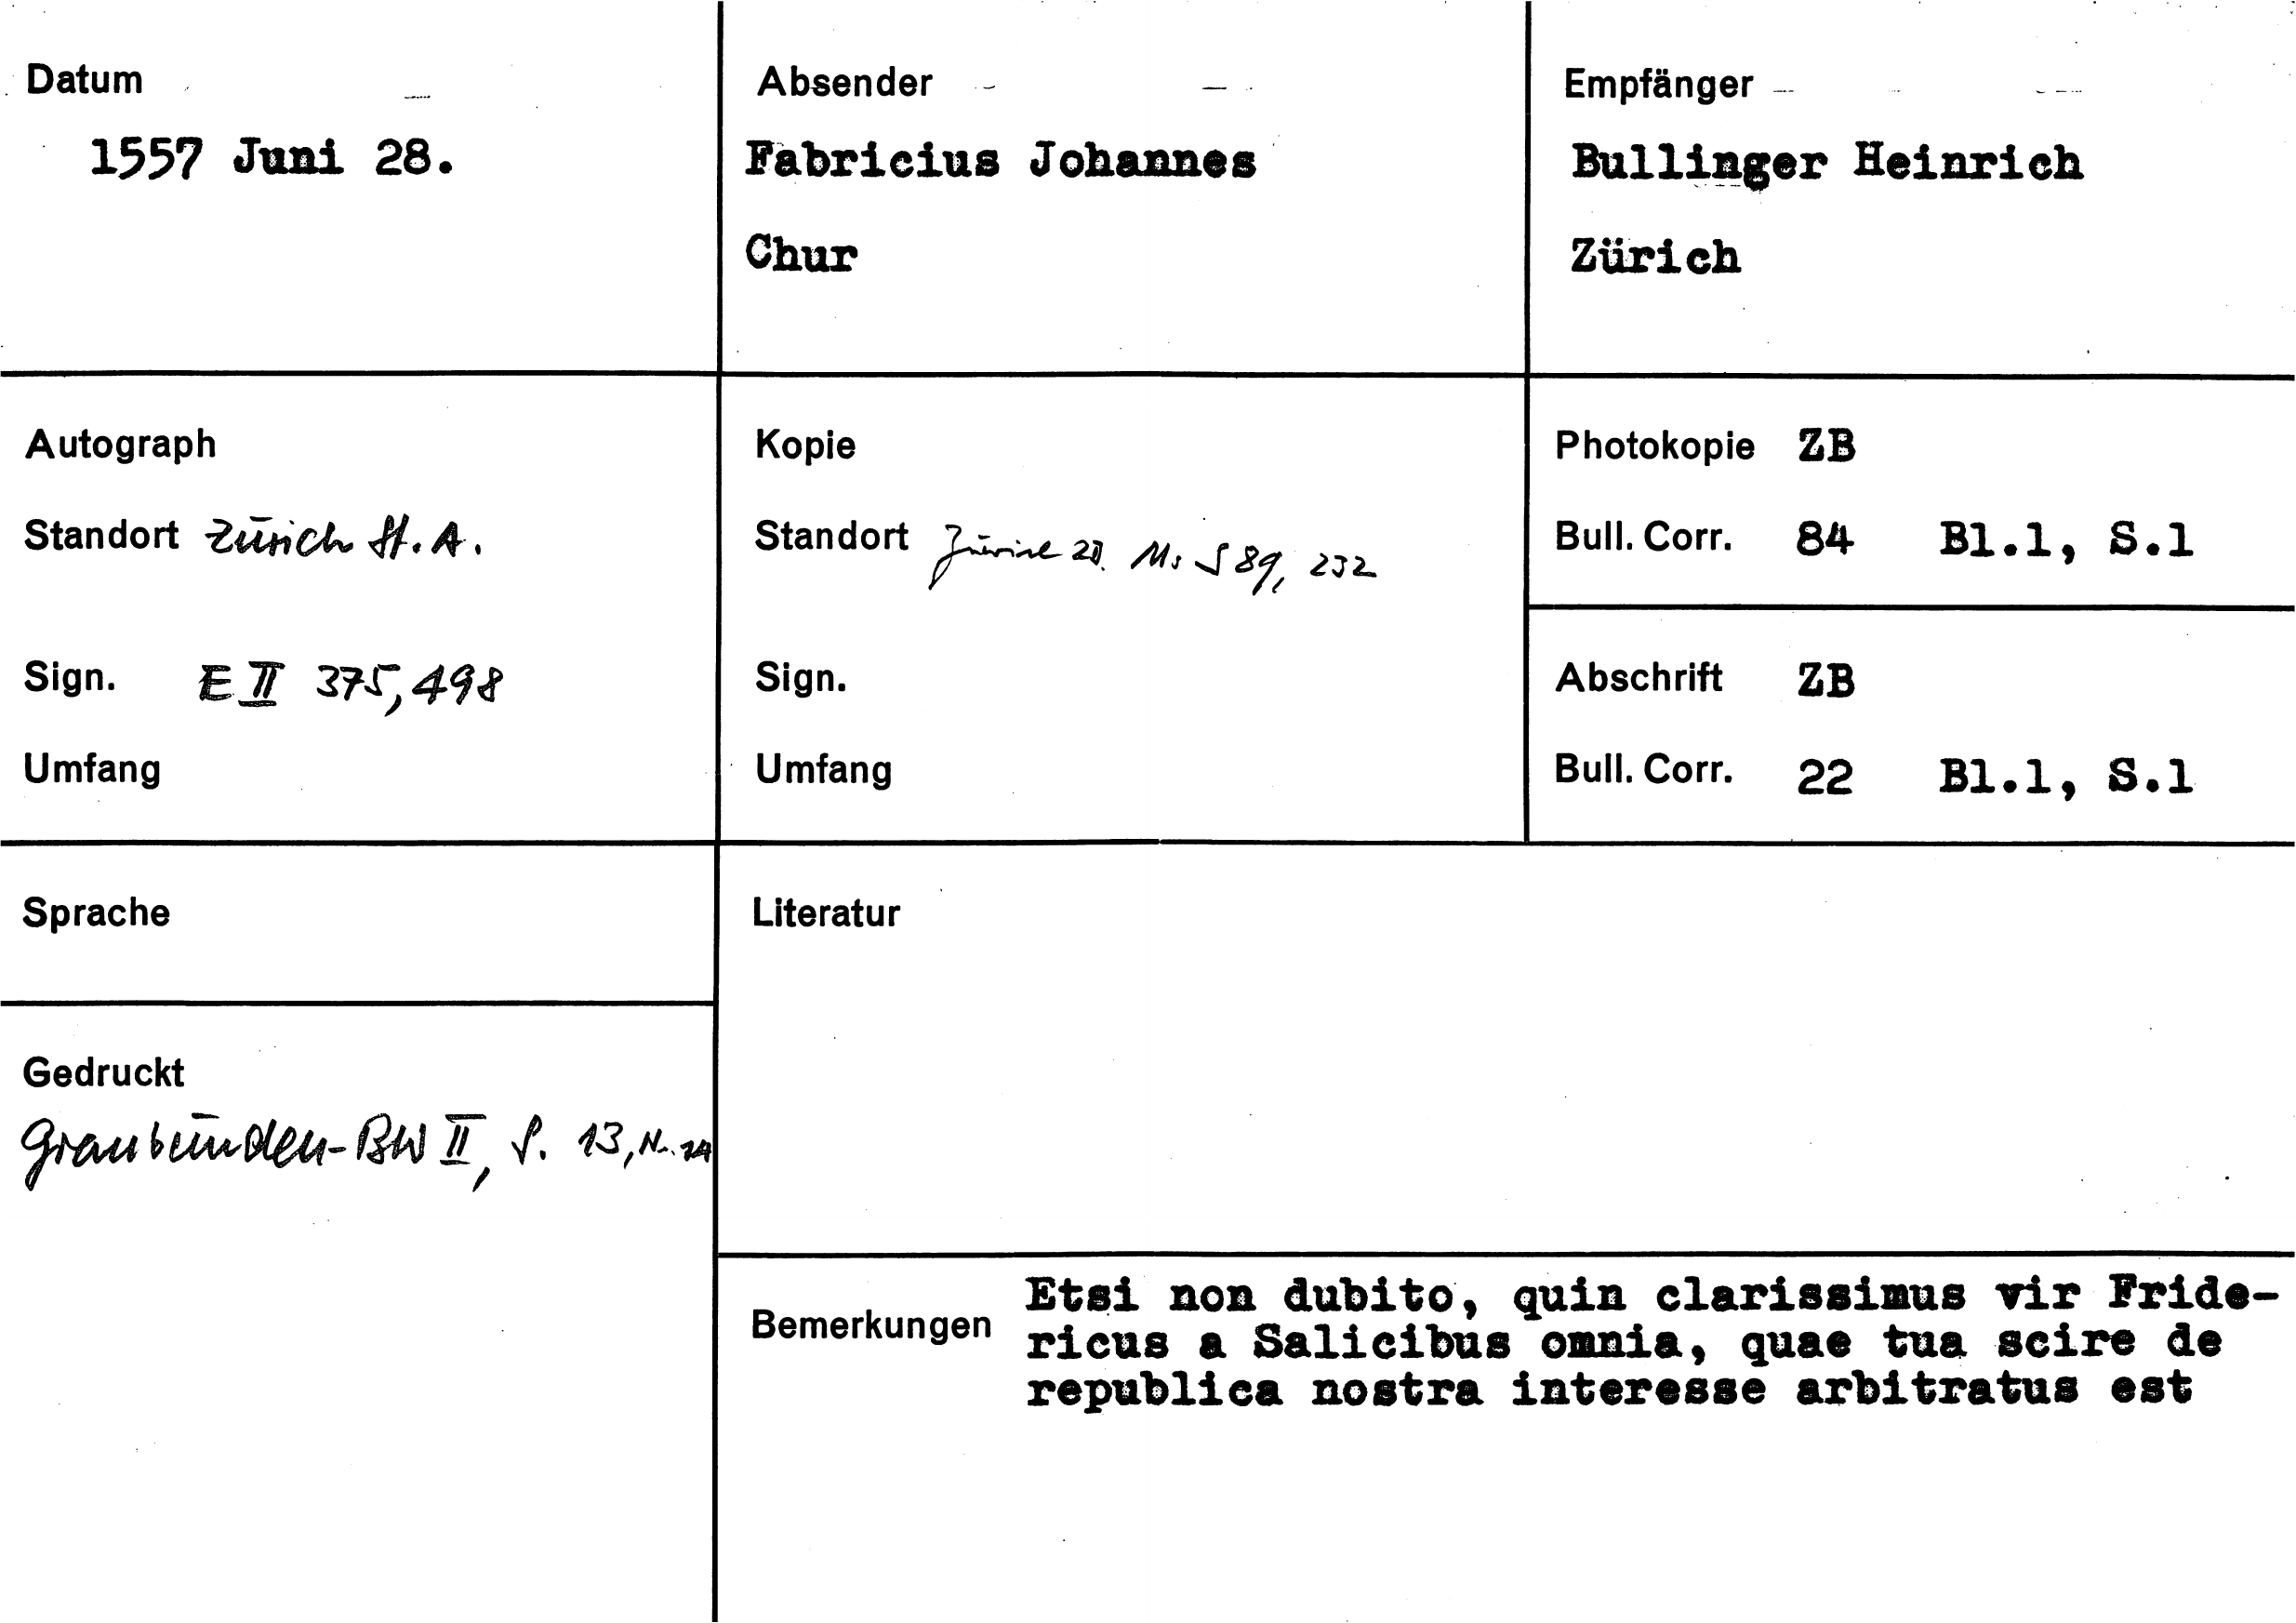 Datum
1557 Juni 28.
Absender
Fabricius Johannes
Chur
Empfänger
Bullinger Heinrich
Zürich
Autograph
Standort Zürich St. A.
Sign. E II 375, 498
Umfang
Kopie
Standort Zürich ZB. Ms S 89, 232
Sign.
Umfang
Photokopie ZB
Bull. Corr. 84 Bl.1, S.1
Abschrift ZB
Bull. Corr. 22 Bl.1, S.1
Sprache
Gedruckt
Graubünden-BW II, S. 13, Nr.
Literatur
Bemerkungen
Etsi non dubito, quin clarissimus vir Fride-
ricus a Salicibus omnia, quae tua scire de
republica nostra interesse arbitratus est